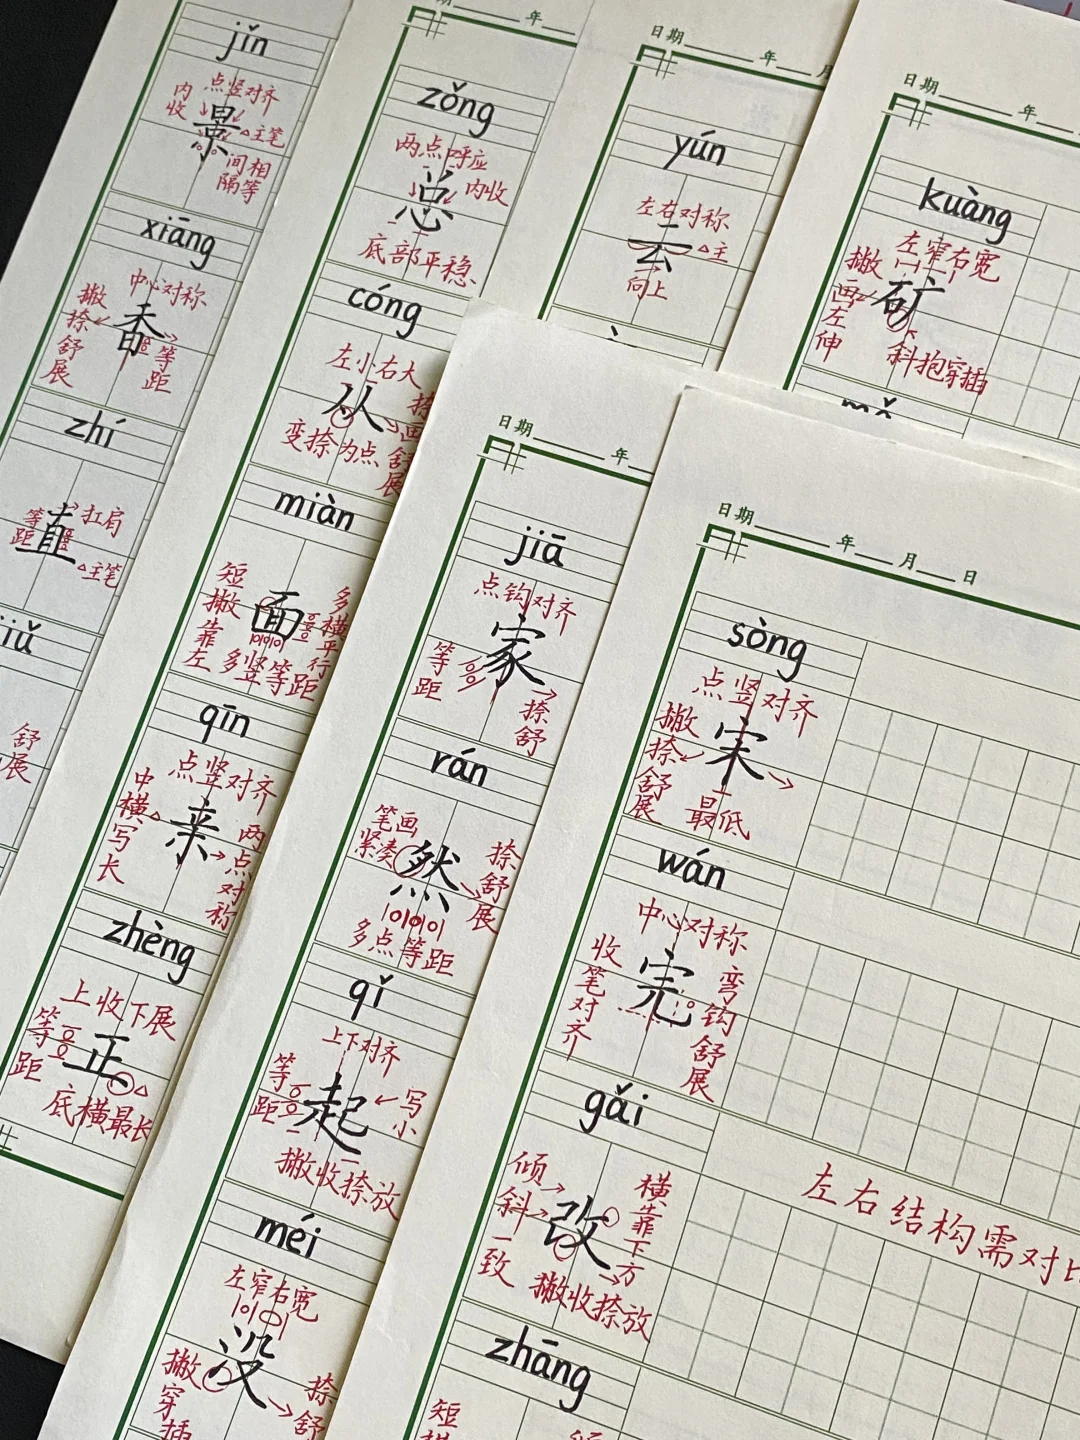 jǐn
点竖对齐
内收
景
△主笔
间相隔等
xiāng
中心对称
撇捺舒展
香
等距
zhí
等距
直
扛肩
△主笔
舒展
日期 年
zǒng
两点呼应
总
内收
底部平稳
cóng
左小右大
从
捺画舒展
变捺为点
miàn
短撇靠左
面
多横平行
多竖等距
qīn
点竖对齐
中横写长
亲
两点对称
zhèng
上收下展
等距
正
底横最长
日期 年 月
yún
左右对称
云
△主
向上
日期 年
kuàng
左窄右宽
撇画左伸
矿
斜抱穿插
日期 年
jiā
点钩对齐
等距
家
捺舒
rán
笔画紧凑
然
捺舒展
多点等距
qǐ
上下对齐
等距
起
写小
撇收捺放
méi
左窄右宽
没
撇穿插
捺舒
日期 年 月 日
sòng
点竖对齐
撇捺舒展
宋
最低
wán
中心对称
收笔对齐
完
弯钩舒展
gǎi
倾斜一致
改
横靠下方
撇收捺放
左右结构需对比
zhāng
短